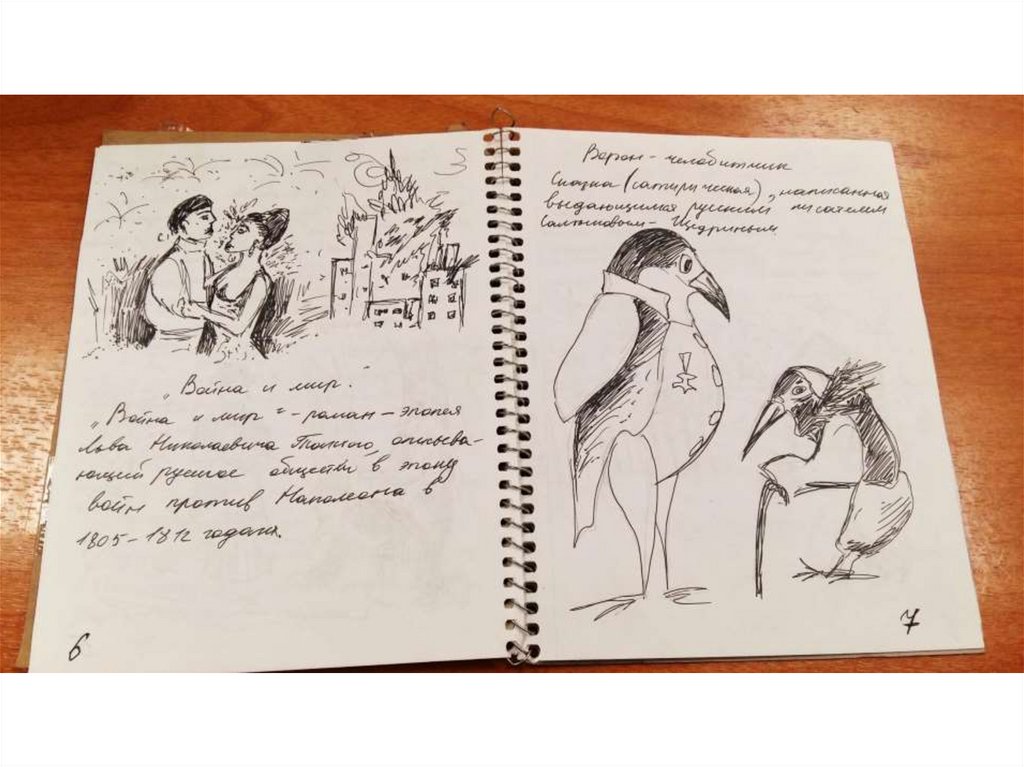 „Война и мир."
„Война и мир" - роман - эпопея
Льва Николаевича Толстого, описыва-
ющий русское общество в эпоху
войн против Наполеона в
1805-1812 годах.
6
Ворон - челобитчик
Сказка (сатирическая), написанная
выдающимся русским писателем
Салтыковым-Щедриным.
7